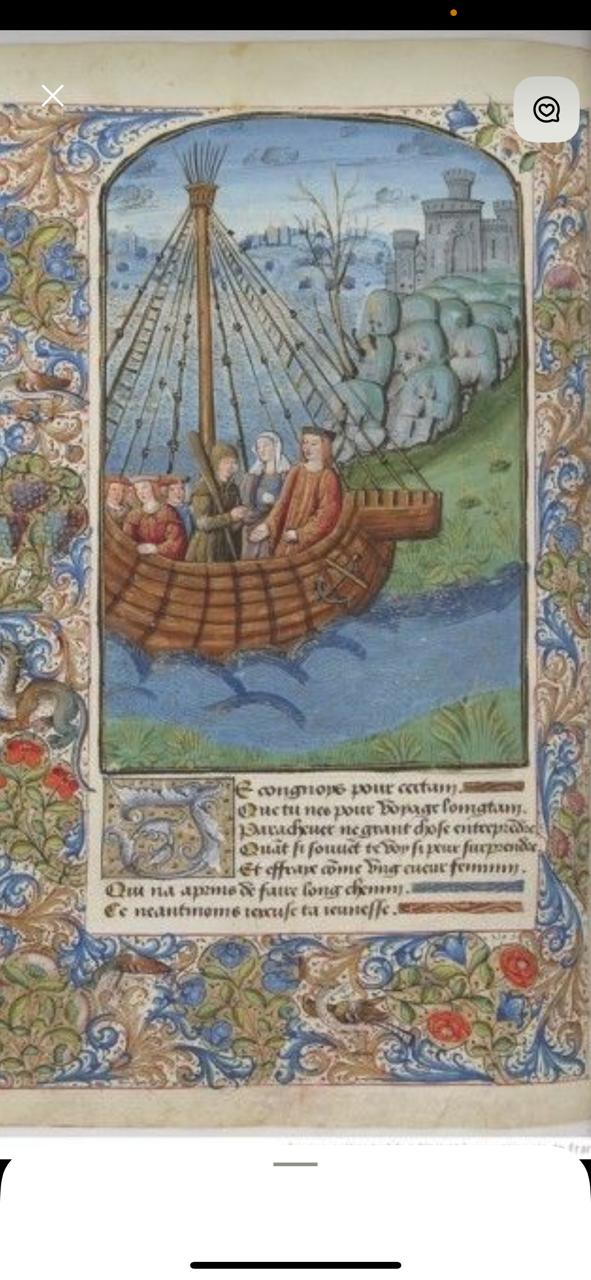 Je congnoys pour certain.
Que tu nes pour voyage loingtain.
Parachever ne grant chose entreprēdre
Quāt si souuēt te voy si peur surprendre.
Et effraye cōme vng cueur feminin.
Qui na aprins de faire long chemin.
Ce neantmoins iexcuse ta ieunesse.